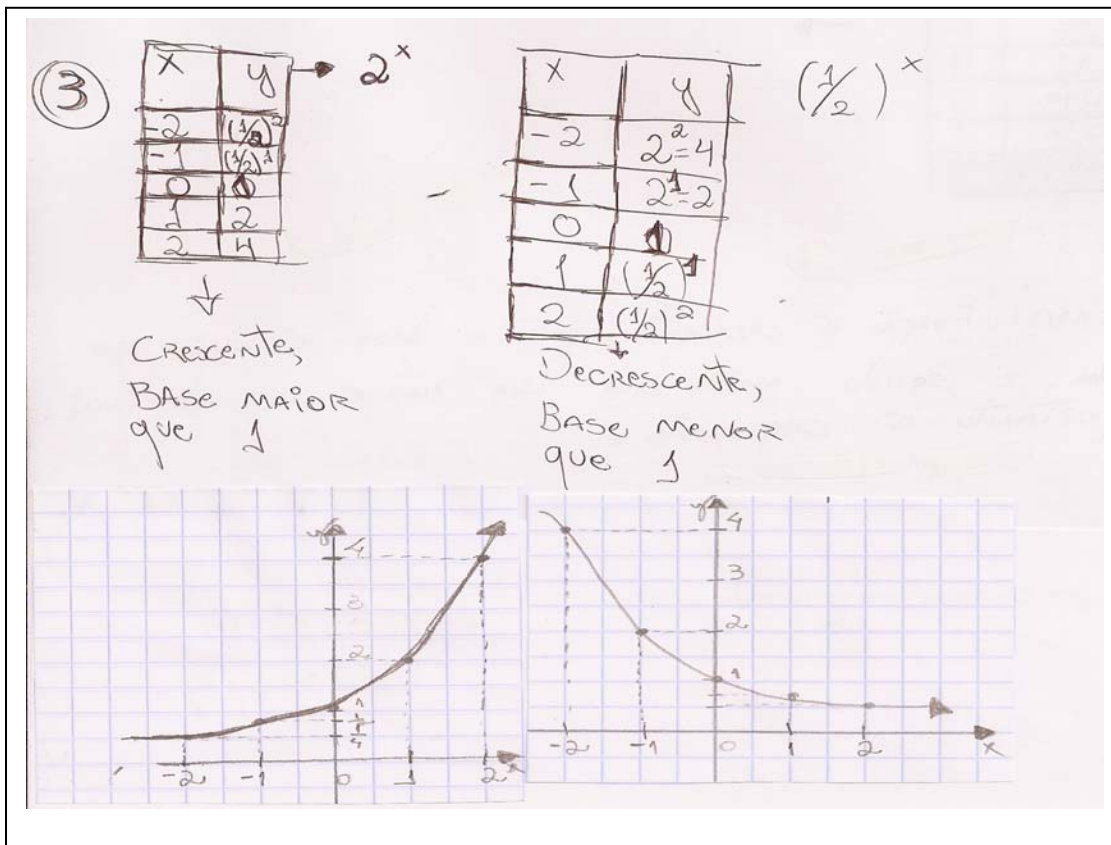 3
x y → 2^x
-2 (1/2)^2
-1 (1/2)^1
0 1
1 2
2 4
↓
CRESCENTE,
BASE MAIOR
que 1
x y (1/2)^x
-2 2^2=4
-1 2^1=2
0 1
1 (1/2)^1
2 (1/2)^2
↓
DECRESCENTE,
BASE MENOR
que 1
y
4
3
2
1
-2 -1 0 1 2 x
y
4
3
2
1
-2 -1 0 1 2 x